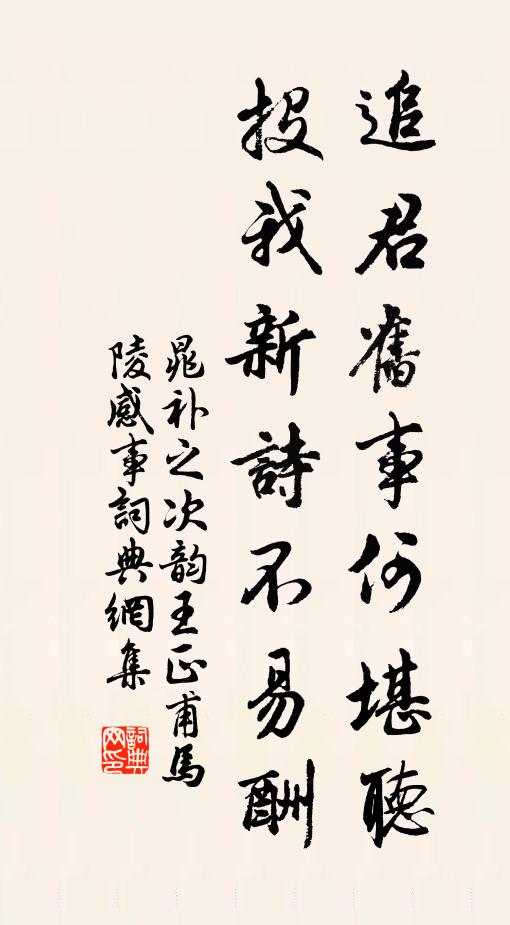 追君舊事何堪聽
投我新詩不易酬
晁补之次韵王正甫馬
陵感事詞典網集
詞典网印